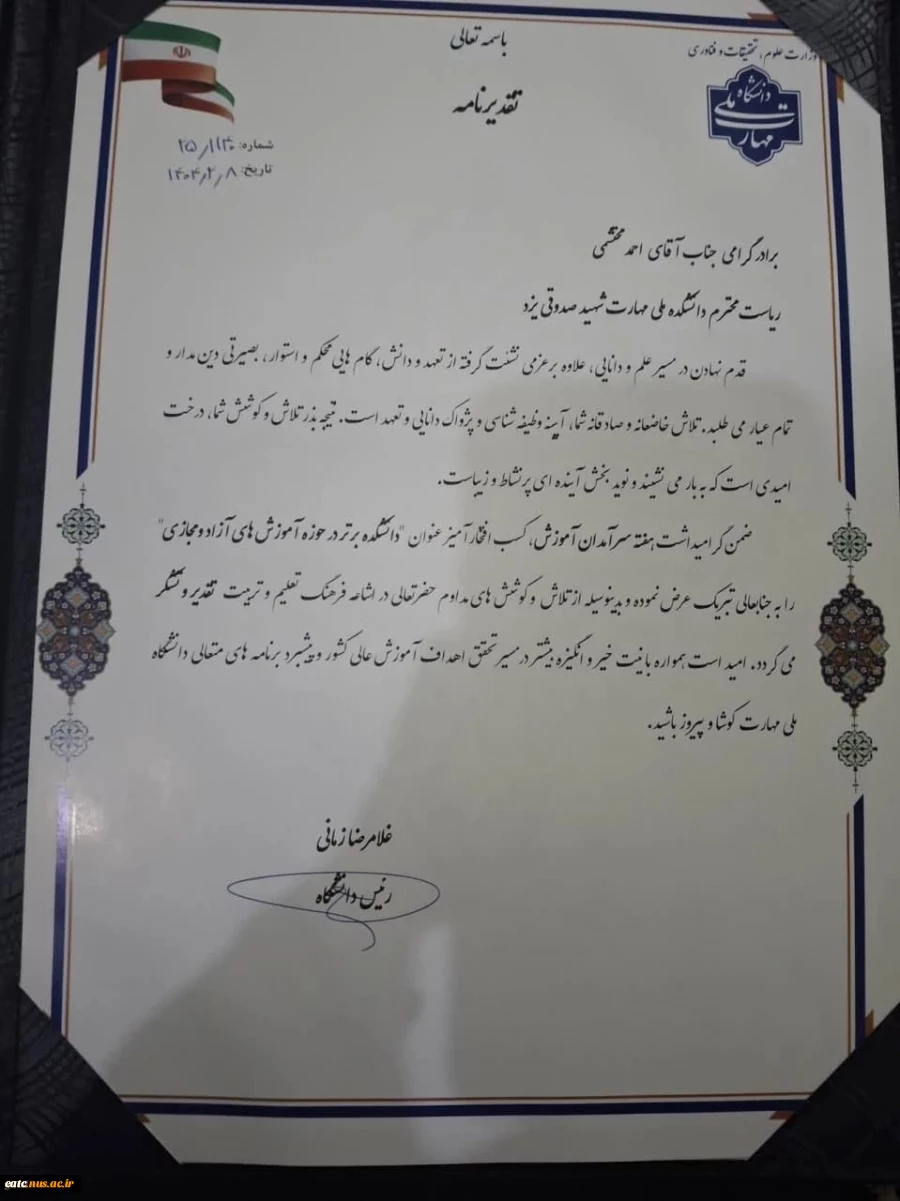 باسمه تعالی
وزارت علوم، تحقیقات و فناوری
دانشگاه
ملی
مهارت
تقدیرنامه
شماره: ۲۵/۱۱۴۰
تاریخ: ۱۴۰۴/۲/۸
برادر گرامی جناب آقای احمد محتشمی
ریاست محترم دانشکده ملی مهارت شهید صدوقی یزد
قدم نهادن در مسیر علم و دانایی، علاوه بر عزمی نشئت گرفته از تعهد و دانش، گام هایی محکم و استوار، بصیرتی دین مدار و
تمام عیار می طلبد. تلاش خاضعانه و صادقانه شما، آیینه وظیفه شناسی و پژواک دانایی و تعهد است. نتیجه بذر تلاش و کوشش شما، درخت
امیدی است که به بار می نشیند و نوید بخش آینده ای پرنشاط و زیباست.
ضمن گرامیداشت هفته سرآمدان آموزش، کسب افتخارآمیز عنوان "دانشکده برتر در حوزه آموزش های آزاد و مجازی"
را به جنابعالی تبریک عرض نموده و بدینوسیله از تلاش و کوشش های مداوم حضرتعالی در اشاعه فرهنگ تعلیم و تربیت تقدیر و تشکر
می گردد. امید است همواره با نیت خیر و انگیزه بیشتر در مسیر تحقق اهداف آموزش عالی کشور و پیشبرد برنامه های متعالی دانشگاه
ملی مهارت کوشا و پیروز باشید.
غلامرضا زمانی
رئیس دانشگاه
eatc.nus.ac.ir